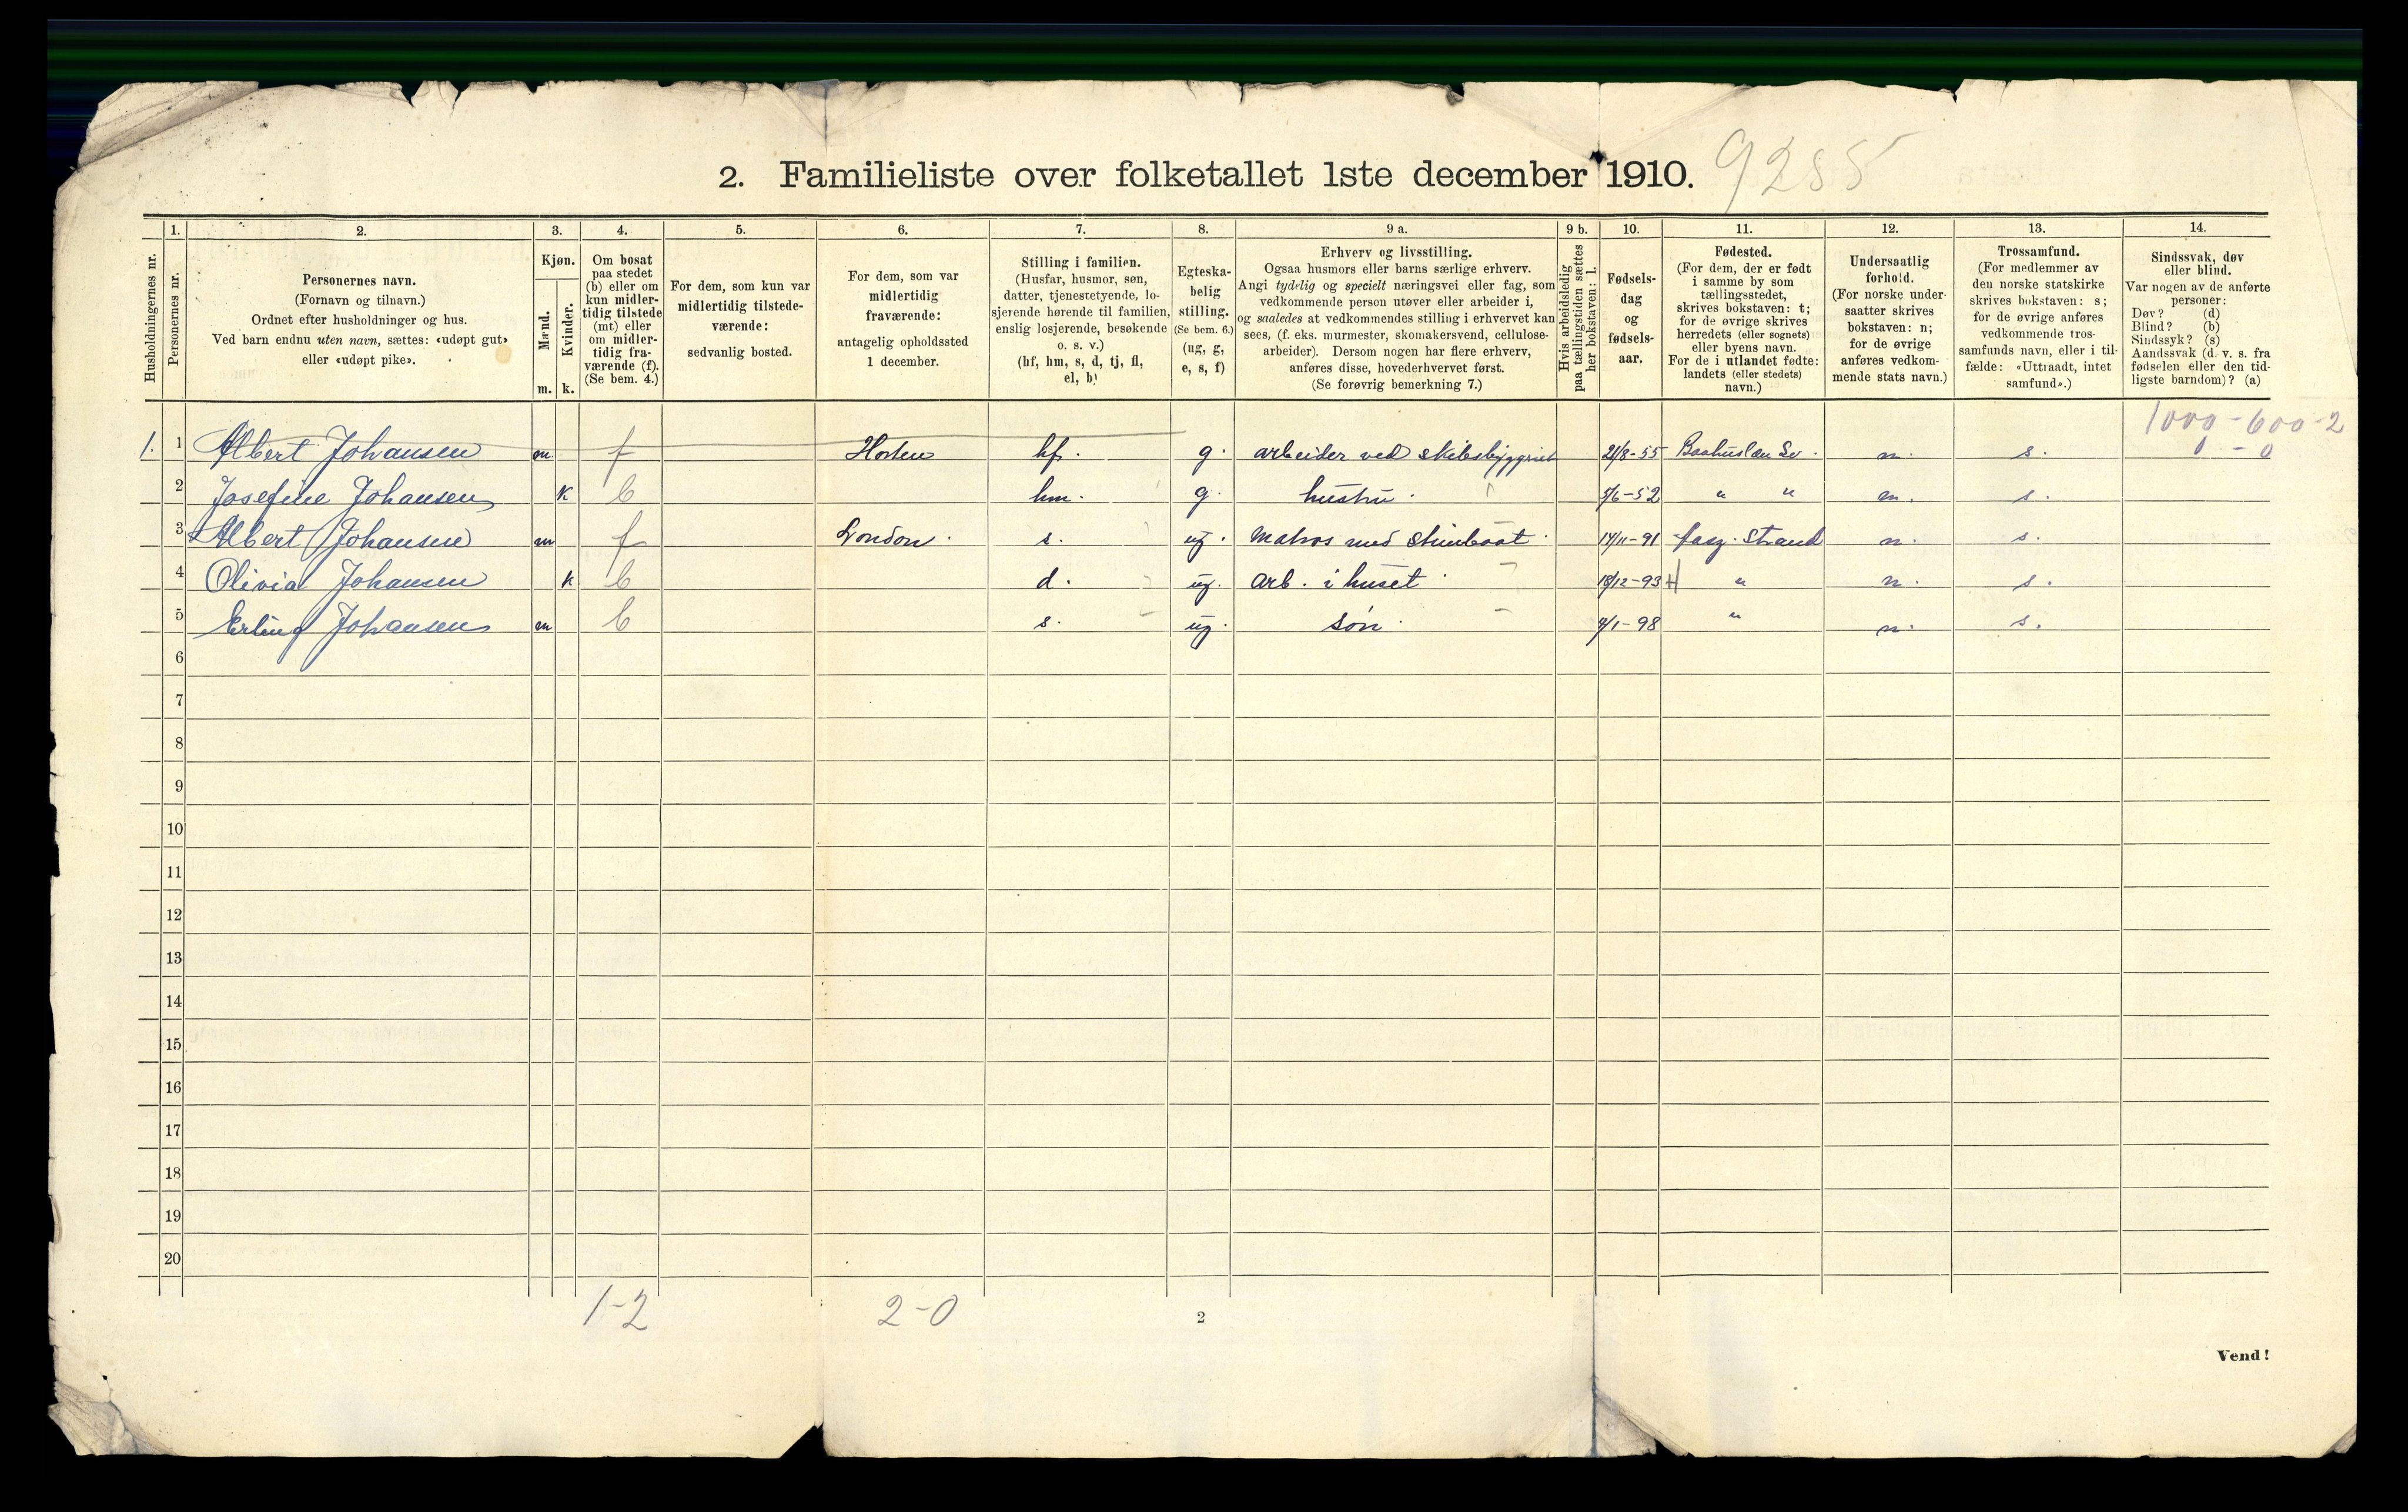 2. Familieliste over folketallet 1ste december 1910. 9285
Husholdningernes nr.
1.
Personernes nr.
2.
Personernes navn.
(Fornavn og tilnavn.)
Ordnet efter husholdninger og hus.
Ved barn endnu uten navn, sættes: «udøpt gut»
eller «udøpt pike».
3.
Kjøn.
Mænd.
m.
Kvinder.
k.
4.
Om bosat
paa stedet
(b) eller om
kun midler-
tidig tilstede
(mt) eller
om midler-
tidig fra-
værende (f).
(Se bem. 4.)
5.
For dem, som kun var
midlertidig tilstede-
værende:
sedvanlig bosted.
6.
For dem, som var
midlertidig
fraværende:
antagelig opholdssted
1 december.
7.
Stilling i familien.
(Husfar, husmor, søn,
datter, tjenestetyende, lo-
sjerende hørende til familien,
enslig losjerende, besøkende
o. s. v.)
(hf, hm, s, d, tj, fl,
el, b)
8.
Egteska-
belig
stilling.
(Se bem. 6.)
(ug, g,
e, s, f)
9 a.
Erhverv og livsstilling.
Ogsaa husmors eller barns særlige erhverv.
Angi tydelig og specielt næringsvei eller fag, som
vedkommende person utøver eller arbeider i,
og saaledes at vedkommendes stilling i erhvervet kan
sees, (f. eks. murmester, skomakersvend, cellulose-
arbeider). Dersom nogen har flere erhverv,
anføres disse, hovederhvervet først.
(Se forøvrig bemerkning 7.)
9 b.
Hvis arbeidsledig
paa tællingstiden sættes
her bokstaven: l.
10.
Fødsels-
dag
og
fødsels-
aar.
11.
Fødested.
(For dem, der er født
i samme by som
tællingsstedet,
skrives bokstaven: t;
for de øvrige skrives
herredets (eller sognets)
eller byens navn.
For de i utlandet fødte:
landets (eller stedets)
navn.)
12.
Undersaatlig
forhold.
(For norske under-
saatter skrives
bokstaven: n;
for de øvrige
anføres vedkom-
mende stats navn.)
13.
Trossamfund.
(For medlemmer av
den norske statskirke
skrives bokstaven: s;
for de øvrige anføres
vedkommende tros-
samfunds navn, eller i til-
fælde: «Uttraadt, intet
samfund».)
14.
Sindssvak, døv
eller blind.
Var nogen av de anførte
personer:
Døv? (d)
Blind? (b)
Sindssyk? (s)
Aandssvak (d. v. s. fra
fødselen eller den tid-
ligste barndom)? (a)
1000-600-2
0 - 0
1. 1 Albert Johansen m f Horten hf. g. arbeider ved skibsbyggeriet 21/8-55 Baahuslæn Sv. n. s.
2 Josefine Johansen k b hm. g. hustru. 5/6-52 " " n. s.
3 Albert Johansen m f London. s. ug. Matros med stimbaat. 14/11-91 Aasg. Strand n. s.
4 Olivia Johansen k b d. ug. arb. i huset. 18/12-93 " n. s.
5 Erling Johansen m b s. ug. søn. 9/1-98 " n. s.
6
7
8
9
10
11
12
13
14
15
16
17
18
19
20
1-2 2-0
2
Vend!